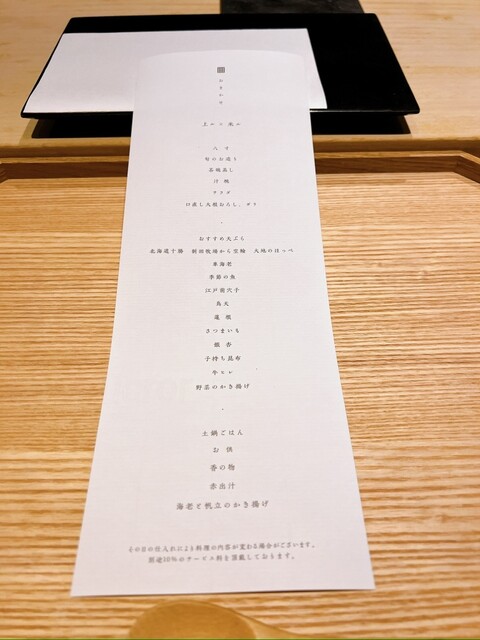 おまかせ
八寸
旬のお造り
茶碗蒸し
汁椀
サラダ
口直し大根おろし、ガリ
おすすめ天ぷら
北海道十勝 前田牧場から空輸 大地のほっぺ
車海老
季節の魚
江戸前穴子
鳥天
蓮根
さつまいも
銀杏
子持ち昆布
牛ヒレ
野菜のかき揚げ
土鍋ごはん
お供
香の物
赤出汁
海老と帆立のかき揚げ
その日の仕入れにより料理の内容が変わる場合がございます。
別途10%のサービス料を頂戴しております。